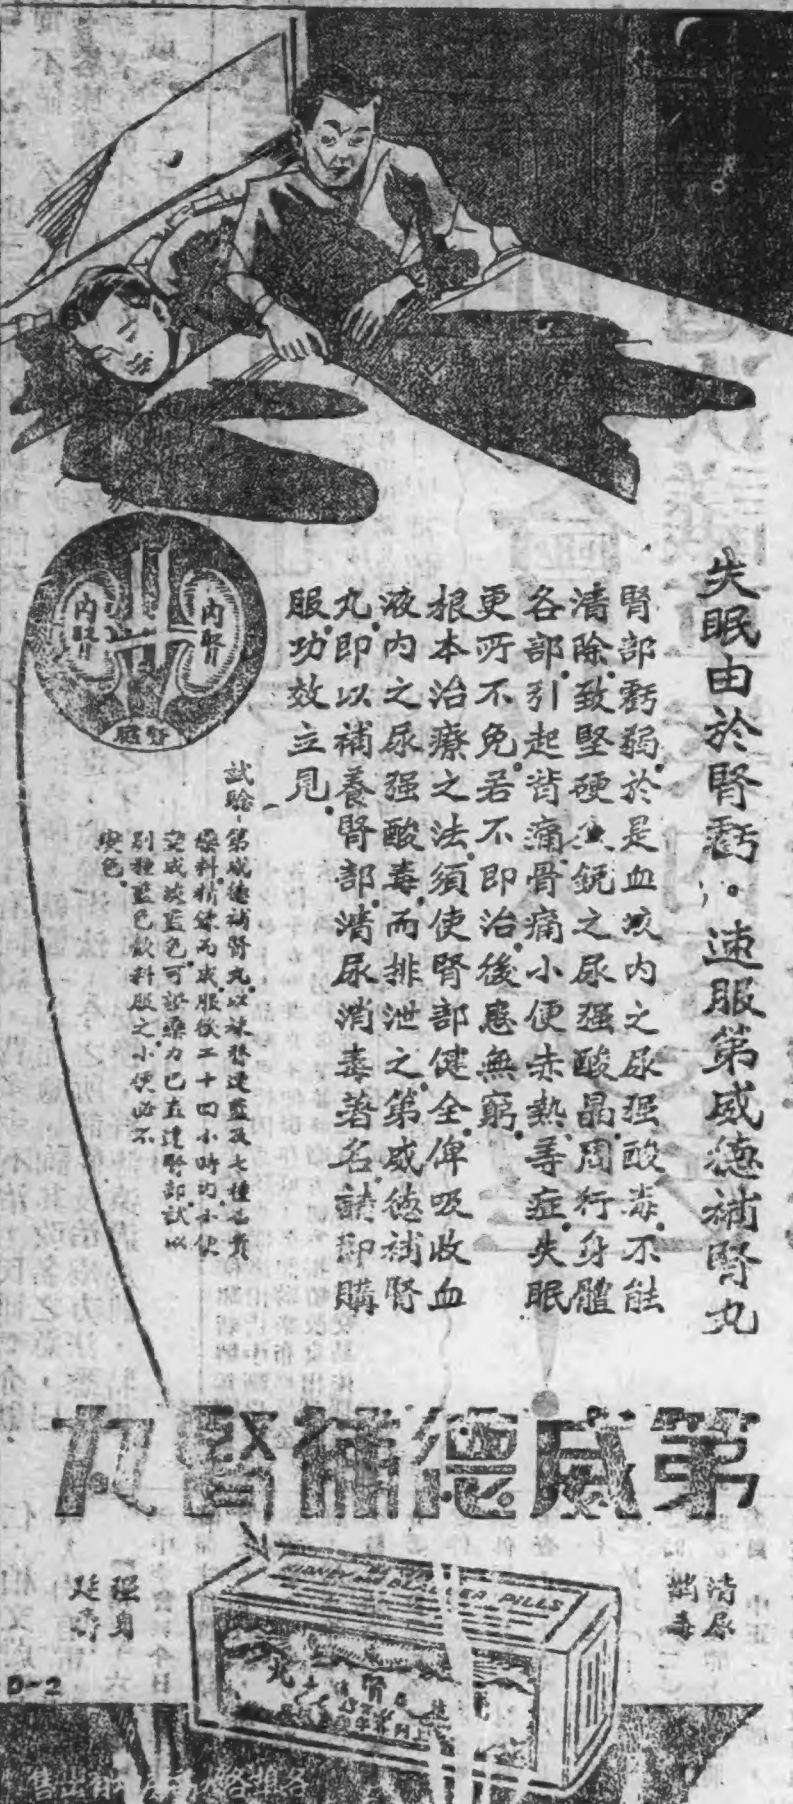 失眠由於腎虧。速服第威德補腎丸
腎部虧弱於是血液內之尿强酸毒不能
清除致堅硬尖銳之尿强酸晶周行身體
各部引起背痛骨痛小便赤熱等症失眠
更所不免若不即治後患無窮
根本治療之法須使腎部健全俾吸收血
液內之尿强酸毒而排泄之第威德補腎
丸即以補養腎部清尿消毒著名請即購
服功效立見
內腎
內腎
腎臟
試驗
第威德補腎丸以
藥料精煉而成服後二十四小時內小便
變成淡藍色可證藥力已直達腎部試以
別種藍色飲料服之小便必不
變色
第威德補腎丸
清尿
消毒
强身
延壽
KIDNEY AND BLADDER PILLS
D-2
各埠各大藥房均有出售